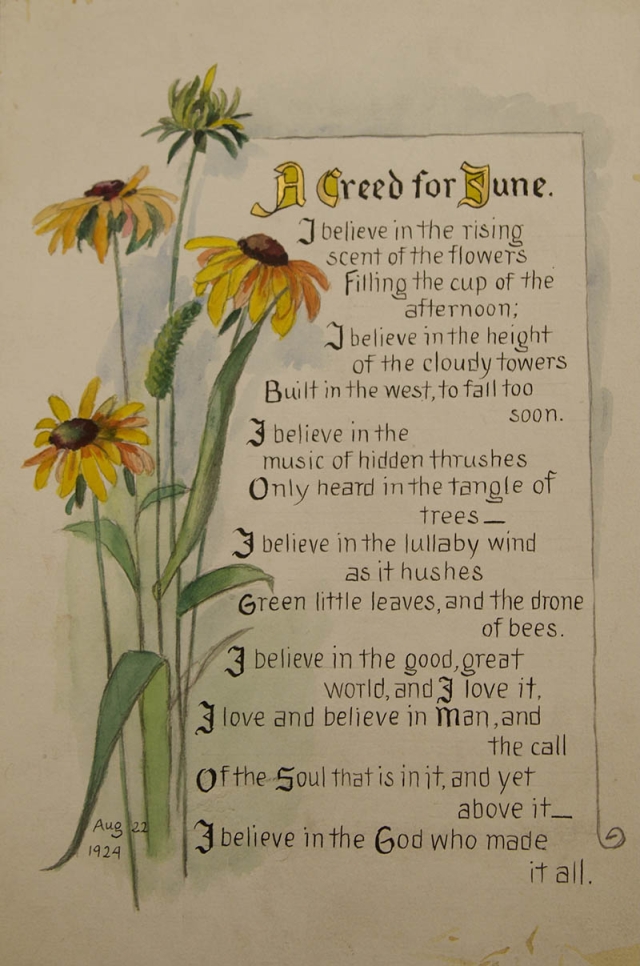 A Creed for June.
I believe in the rising
scent of the flowers
Filling the cup of the
afternoon;
I believe in the height
of the cloudy towers
Built in the west, to fall too
soon.
I believe in the
music of hidden thrushes
Only heard in the tangle of
trees—
I believe in the lullaby wind
as it hushes
Green little leaves, and the drone
of bees.
I believe in the good, great
world, and I love it,
I love and believe in Man, and
the call
Of the Soul that is in it, and yet
above it—
I believe in the God who made
it all.
Aug 22
1924